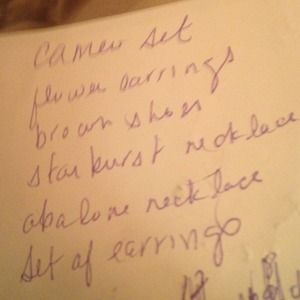 cameo set
flower earrings
brown shoes
starburst necklace
abalone necklace
set of earrings